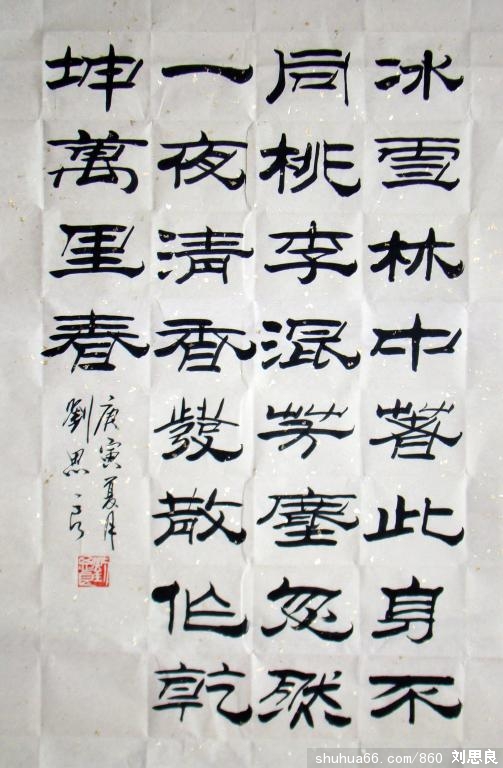 冰雪林中著此身不
同桃李混芳塵忽然
一夜清香發散作乾
坤萬里春
庚寅夏月
劉思良
shuhua66.com/860 刘思良